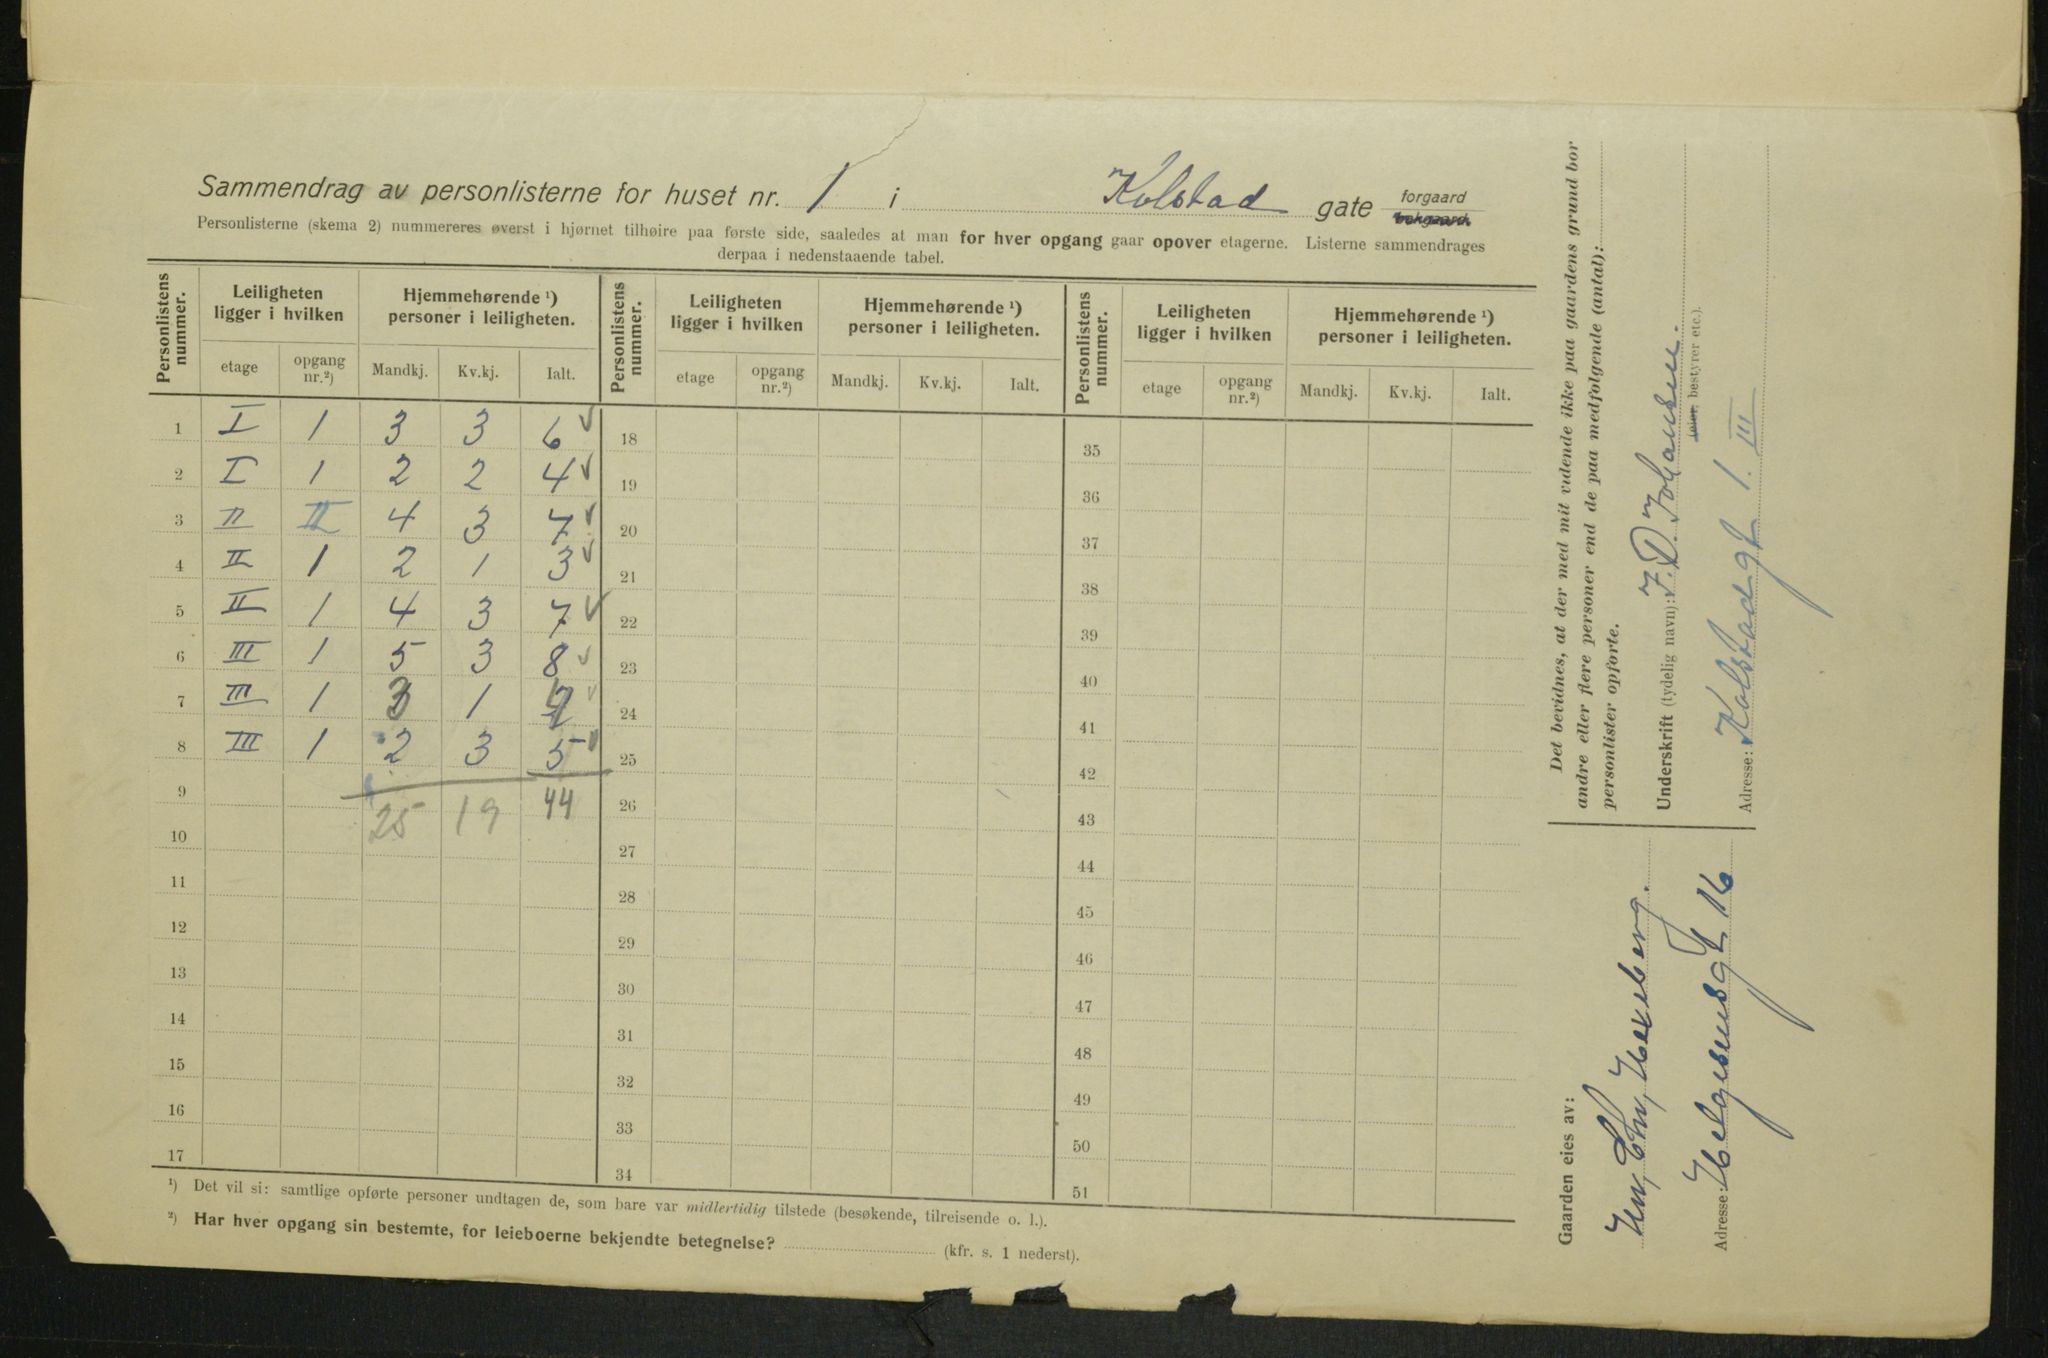 Sammendrag av personlisterne for huset nr. 1 i Kolstad gate forgaard bakgaard
Personlisterne (skema 2) nummereres øverst i hjørnet tilhøire paa første side, saaledes at man for hver opgang gaar opover etagerne. Listerne sammendrages
derpaa i nedenstaaende tabel.
Personlistens nummer. Leiligheten ligger i hvilken Hjemmehørende ¹) personer i leiligheten. Personlistens nummer. Leiligheten ligger i hvilken Hjemmehørende ¹) personer i leiligheten. Personlistens nummer. Leiligheten ligger i hvilken Hjemmehørende ¹) personer i leiligheten.
etage opgang nr.²) Mandkj. Kv.kj. Ialt. etage opgang nr.²) Mandkj. Kv.kj. Ialt. etage opgang nr.²) Mandkj. Kv.kj. Ialt.
1 I 1 3 3 6 ✓ 18 35
2 I 1 2 2 4 ✓ 19 36
3 II II 4 3 7 ✓ 20 37
4 II 1 2 1 3 ✓ 21 38
5 II 1 4 3 7 ✓ 22 39
6 III 1 5 3 8 ✓ 23 40
7 III 1 3 1 ✓ 24 41
8 III 1 2 3 5 ✓ 25 42
9 25 19 44 26 43
10 27 44
11 28 45
12 29 46
13 30 47
14 31 48
15 32 49
16 33 50
17 34 51
¹) Det vil si: samtlige opførte personer undtagen de, som bare var midlertidig tilstede (besøkende, tilreisende o. l.).
²) Har hver opgang sin bestemte, for leieboerne bekjendte betegnelse? (kfr. s. 1 nederst).
Det bevidnes, at der med mit vidende ikke paa gaardens grund bor
andre eller flere personer end de paa medfølgende (antal):
personlister opførte.
Underskrift (tydelig navn): J. D. Johansen.
leier, bestyrer etc.).
Adresse: Kolstadgt 1. III
Gaarden eies av:
Chr,
Adresse: Helgesensgt 16